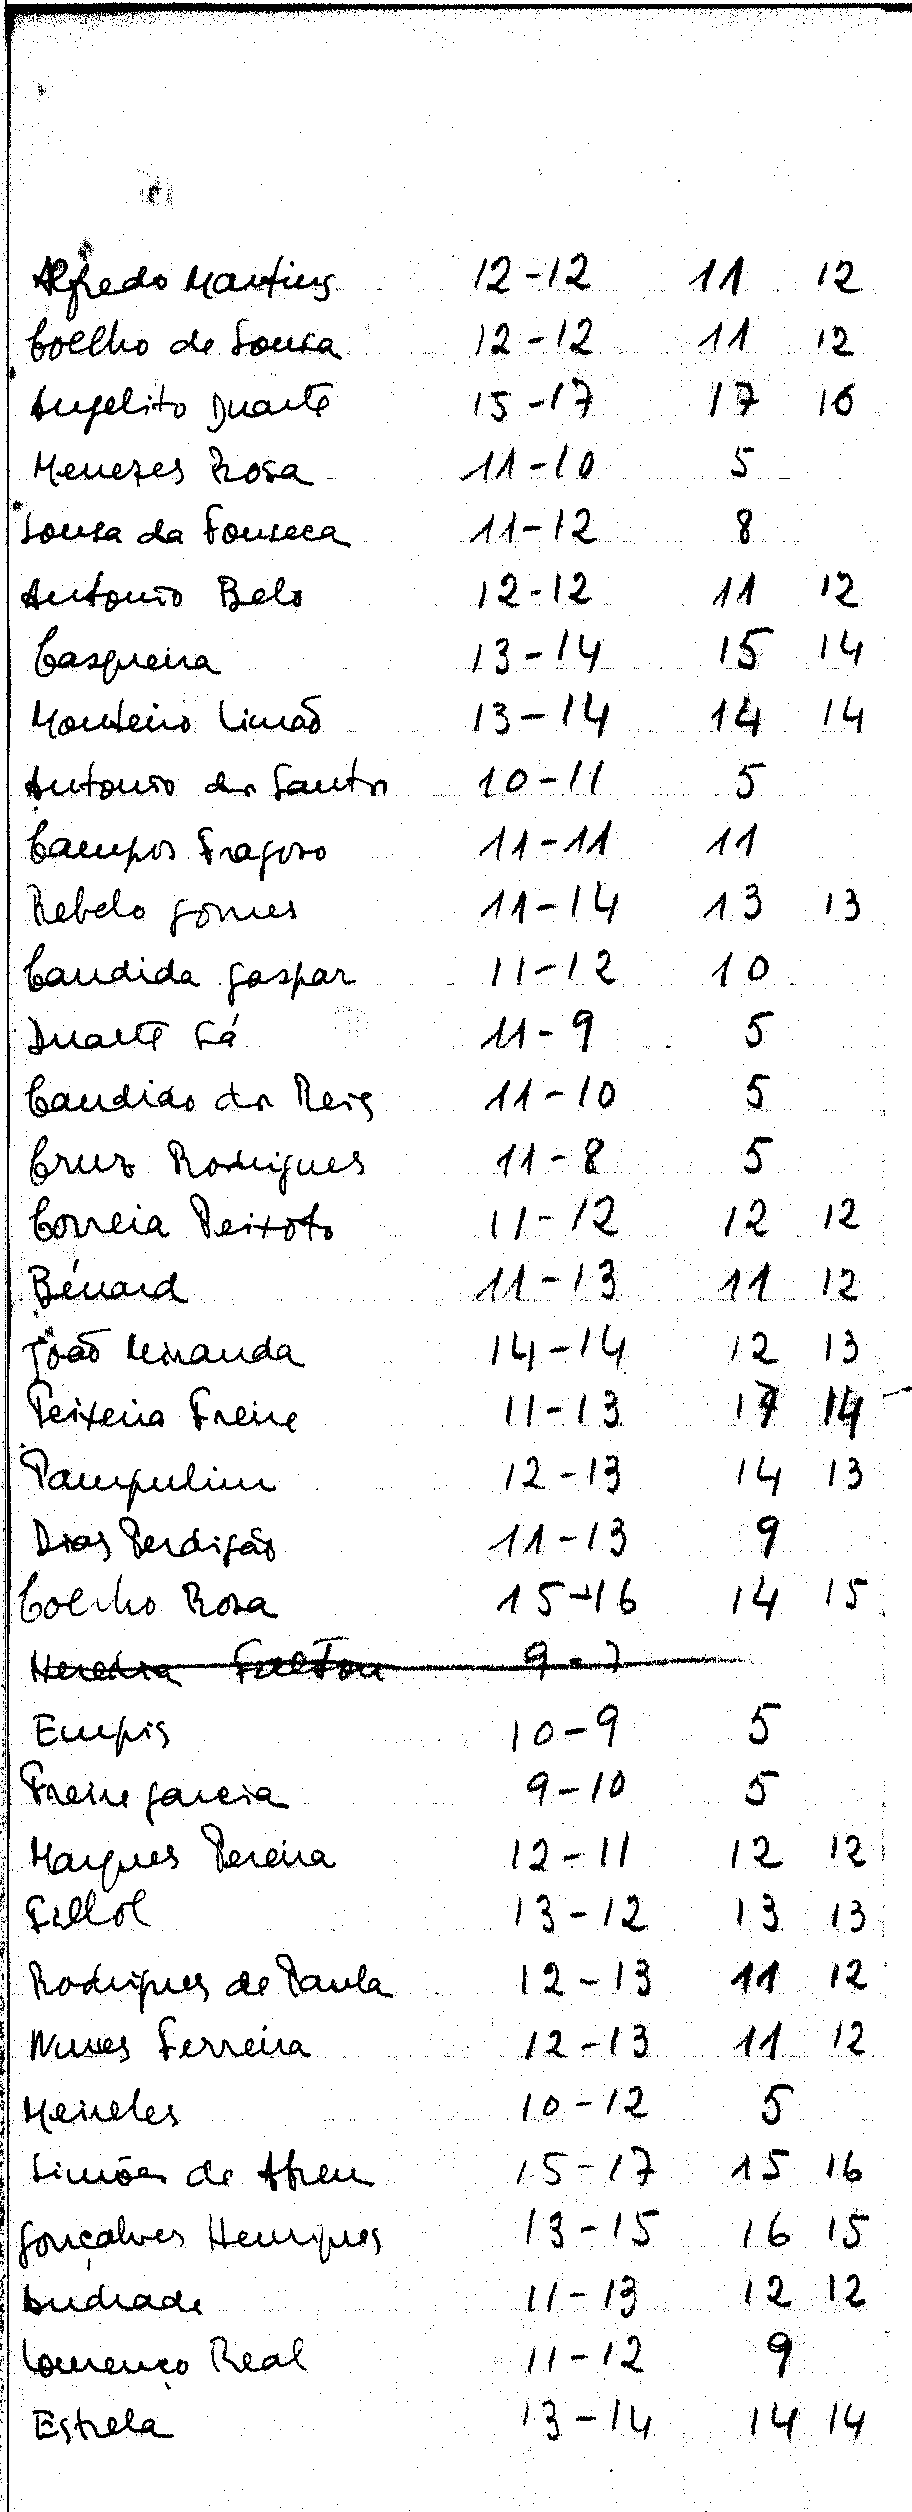 Alfredo Martins 12-12 11 12
Coelho de Sousa 12-12 11 12
Angelito Duarte 15-17 17 16
Menezes Rosa 11-10 5
Sousa da Fonseca 11-12 8
Antonio Belo 12-12 11 12
Casqueira 13-14 15 14
Monteiro Limão 13-14 14 14
Antonio dos Santos 10-11 5
Campos Fragoso 11-11 11
Rebelo Gomes 11-14 13 13
Candida Gaspar 11-12 10
Duarte Sá 11-9 5
Candido dos Reis 11-10 5
Cruz Rodrigues 11-8 5
Correia Peixoto 11-12 12 12
Bénard 11-13 11 12
João Miranda 14-14 12 13
Teixeira Freire 11-13 17 14
Pampulim 12-13 14 13
Dias Perdigão 11-13 9
Coelho Rosa 15-16 14 15
Heredia 9-7
Empis 10-9 5
Freire Garcia 9-10 5
Marques Pereira 12-11 12 12
Fillol 13-12 13 13
Rodrigues de Paula 12-13 11 12
Nunes Ferreira 12-13 11 12
Meireles 10-12 5
Simões de Abreu 15-17 15 16
Gonçalves Henriques 13-15 16 15
Andrade 11-13 12 12
Lourenço Real 11-12 9
Estrela 13-14 14 14